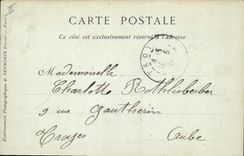 CARTE POSTALE
Ce côté est exclusivement réservé à l'adresse
Mademoiselle
Charlotte Rothlisberber
9 rue Gautherin
Troyes Aube
Établissements Photographiques de NEURDEIN Frères. — Paris